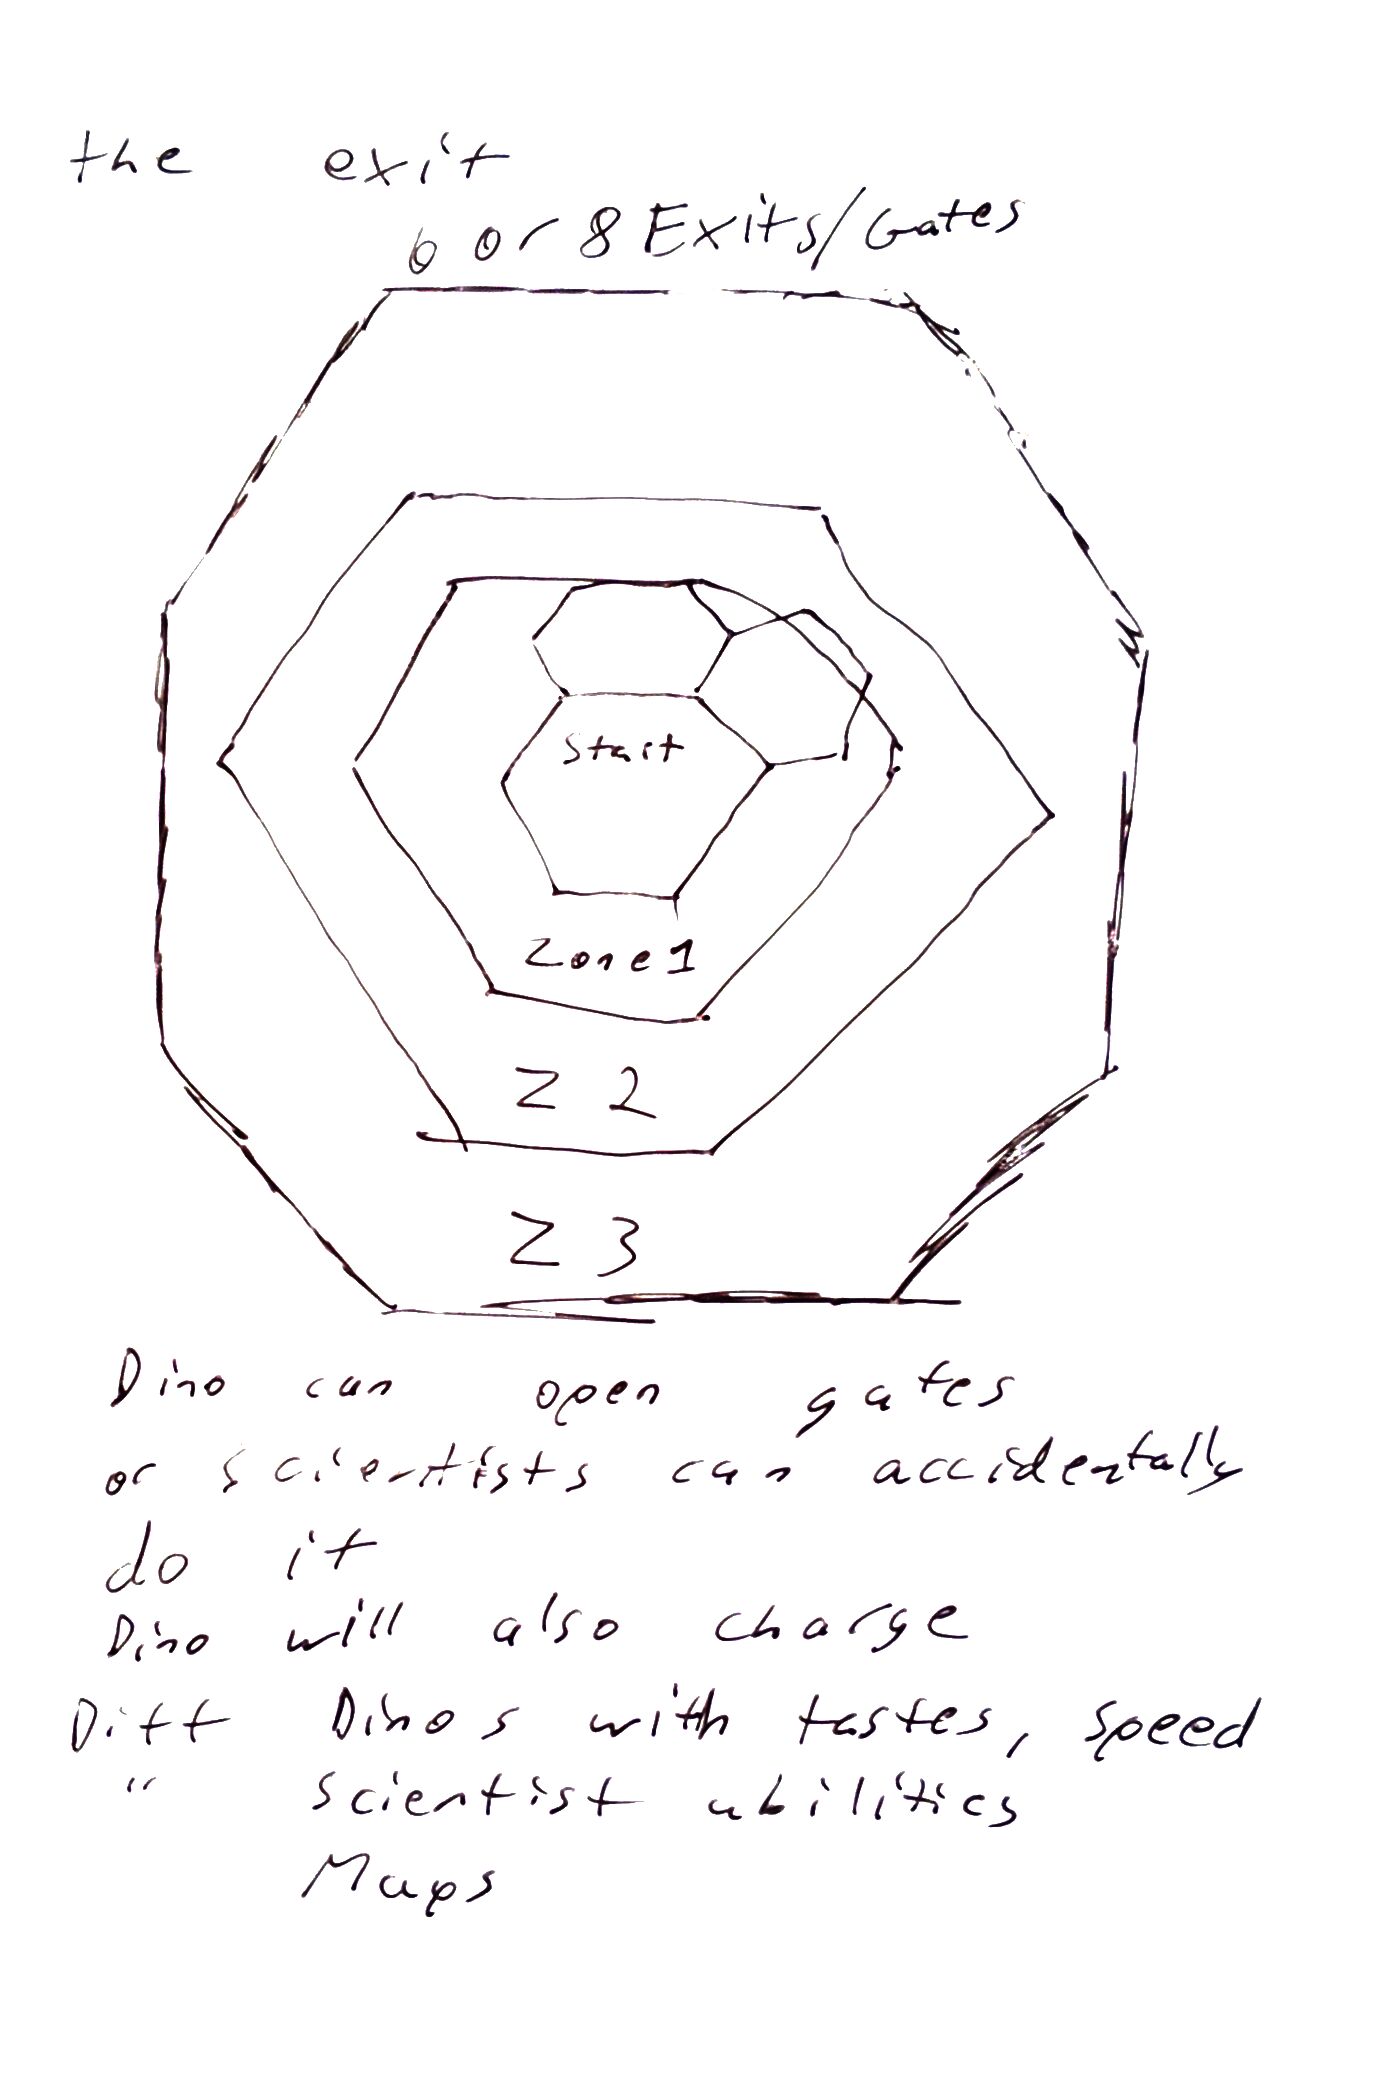 the exit
6 or 8 Exits/Gates
Start
Zone 1
Z 2
Z 3
Dino can open gates
or scientists can accidentally
do it
Dino will also charge
Diff Dinos with tastes, speed
" scientist abilities
Maps